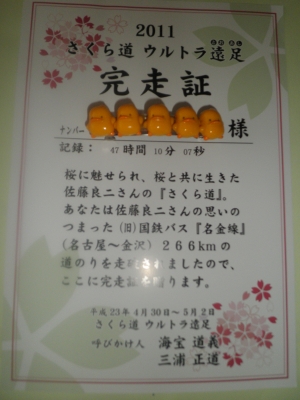 2011
さくら道 ウルトラ遠足
完走証
ナンバー
様
記録： 47時間 10分 07秒
桜に魅せられ、桜と共に生きた
佐藤良二さんの『さくら道』。
あなたは佐藤良二さんの思いの
つまった(旧)国鉄バス『名金線』
(名古屋～金沢) 266kmの
道のりを走破されましたので、
ここに完走証を贈ります。
平成23年4月30日～5月2日
さくら道 ウルトラ遠足
呼びかけ人 海宝 道義
三浦 正道